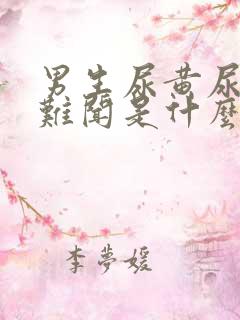 男生尿黄尿
難聞是什麼
李夢媛